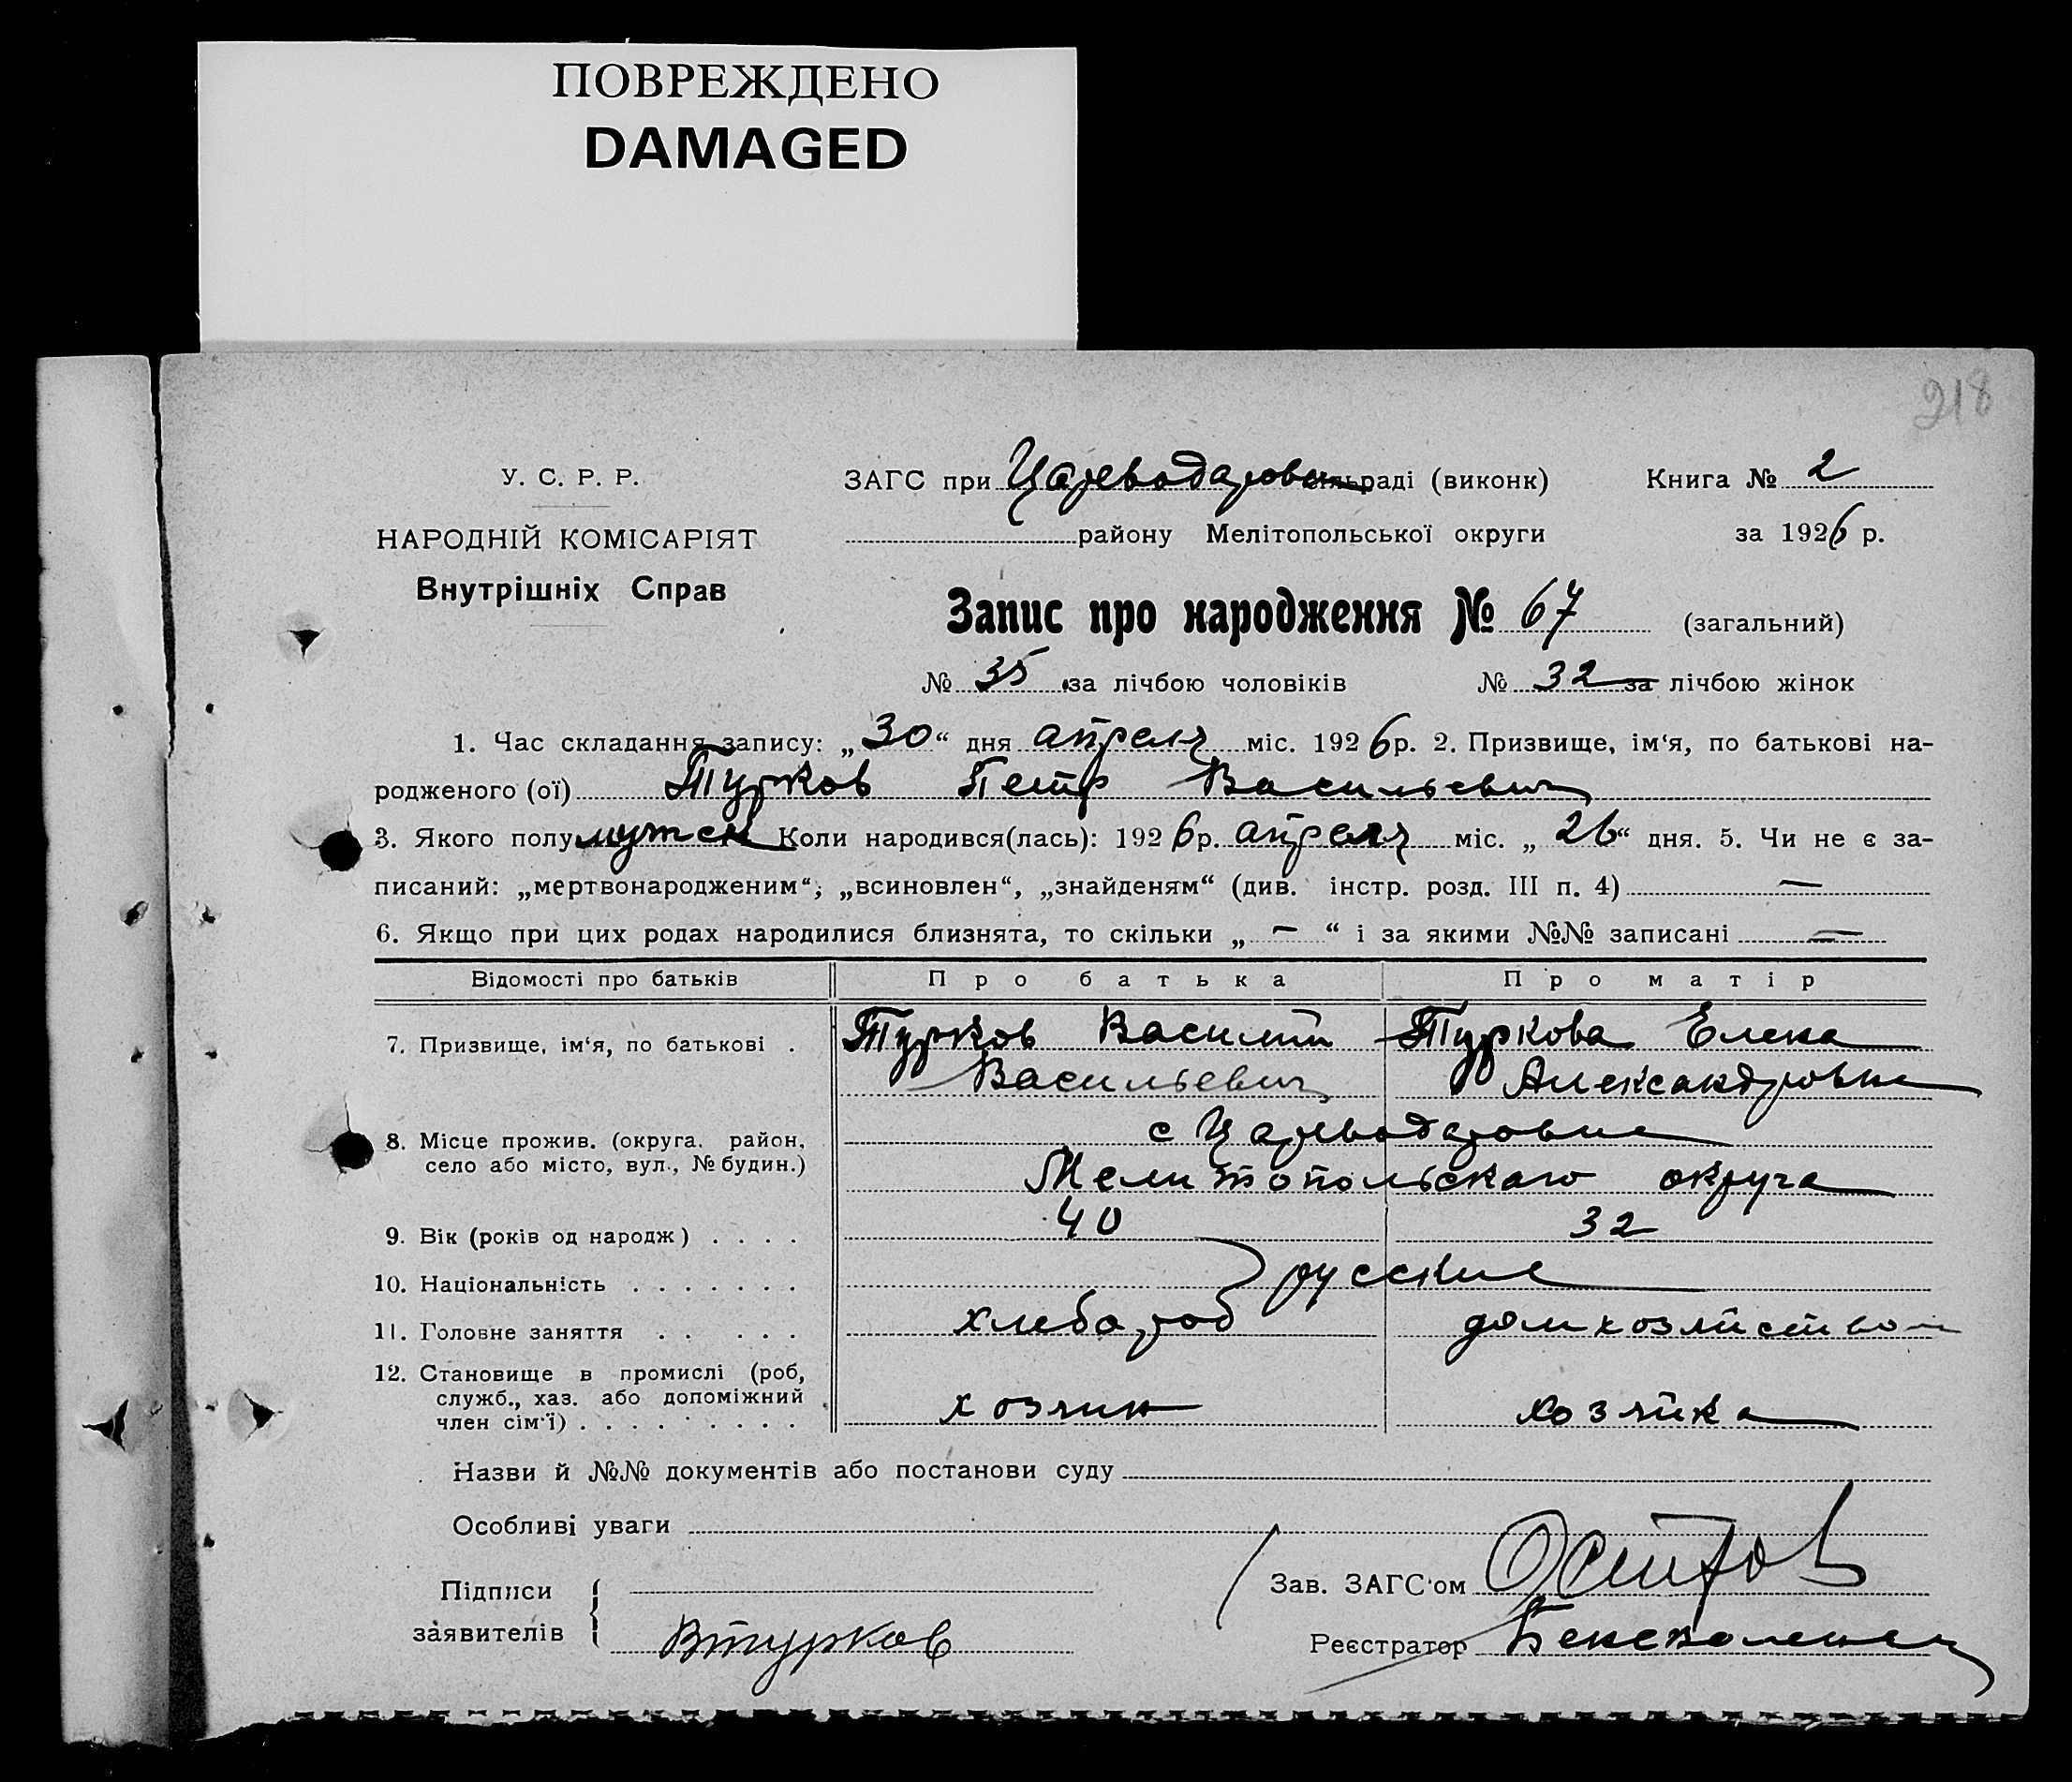 ПОВРЕЖДЕНО
DAMAGED
218
У. С. Р. Р.
НАРОДНІЙ КОМІСАРІЯТ
Внутрішніх Справ
ЗАГС при Цареводаровск сільраді (виконк)
Книга № 2
району Мелітопольської округи
за 1926 р.
Запис про народження № 67 (загальний)
№ 35 за лічбою чоловіків № 32 за лічбою жінок
1. Час складання запису: „30“ дня апреля міс. 1926 р. 2. Призвище, ім‘я, по батькові на-
родженого (ої) Турков Петр Васильевич
3. Якого полу мужск Коли народився(лась): 1926 р. апреля міс. „26“ дня. 5. Чи не є за-
писаний: „мертвонародженим“, „всиновлен“, „знайденям“ (див. інстр. розд. III п. 4) —
6. Якщо при цих родах народилися близнята, то скільки „ — “ і за якими №№ записані —
Відомості про батьків Про батька Про матір
7. Призвище, ім‘я, по батькові . Турков Василий Туркова Елена
Васильевич Александровна
8. Місце прожив. (округа, район, село або місто, вул., № будин.) с Цареводаровке
Мелитопольскаго округа
9. Вік (років од народж) . . . . 40 32
10. Національність . . . . . . . русские
11. Головне заняття . . . . . хлебороб домхозяйством
12. Становище в промислі (роб,
служб., хаз. або допоміжний
член сім‘ї) . . . . . . . . . хозяин хозяйка
Назви й №№ документів або постанови суду
Особливі уваги
Підписи
заявителів ВТурков
Зав. ЗАГС‘ом Осипов
Реєстратор